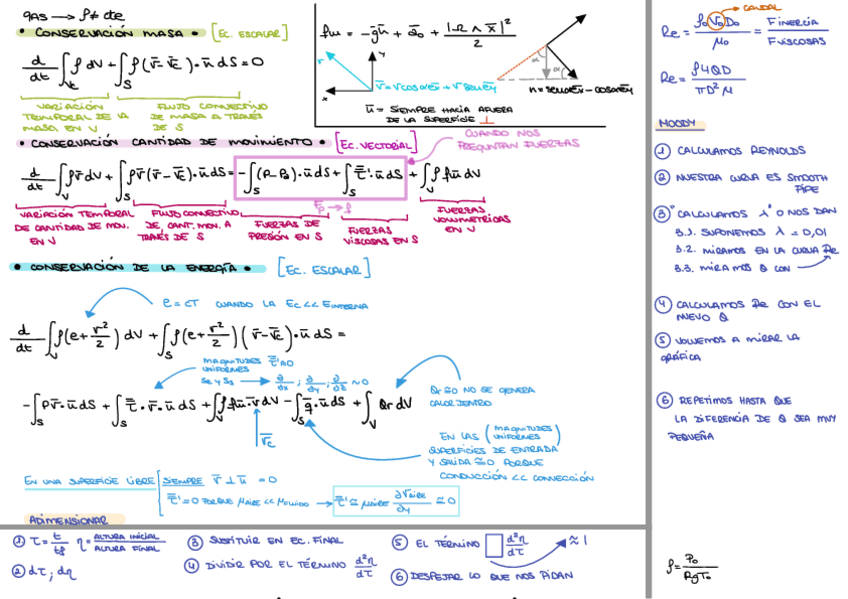 gas → ρ ≠ cte
• CONSERVACIÓN MASA • [EC. ESCALAR]
d/dt ∫_Vt ρ dV + ∫_S ρ(v̄ - v̄c)·n̄ dS = 0
VARIACIÓN TEMPORAL DE LA MASA EN V
FLUJO CONVECTIVO DE MASA A TRAVÉS DE S
ρfm = -ḡn̄ + ā0 + |Ω ∧ x̄|²/2
y
x
v
v̄ = v cosα ex + v senα ey
α
α
n = senα ex - cosα ey
n̄ = SIEMPRE HACIA AFUERA
DE LA SUPERFICIE ⊥
• CONSERVACIÓN CANTIDAD DE MOVIMIENTO • [EC. VECTORIAL]
CUANDO NOS
PREGUNTAN FUERZAS
d/dt ∫_V ρv̄ dV + ∫_S ρv̄(v̄ - v̄c)·n̄ dS = -∫_S (P - Pa)·n̄ dS + ∫_S τ̄'·n̄ dS + ∫_V ρ f̄m dV
VARIACIÓN TEMPORAL
DE CANTIDAD DE MOV.
EN V
FLUJO CONVECTIVO
DE CANT. MOV. A
TRAVÉS DE S
FUERZAS DE
PRESIÓN EN S
FUERZAS
VISCOSAS EN S
FUERZAS
VOLUMÉTRICAS
EN V
• CONSERVACIÓN DE LA ENERGÍA • [EC. ESCALAR]
e = cT CUANDO LA Ec << E INTERNA
d/dt ∫_V ρ(e + v²/2) dV + ∫_S ρ(e + v²/2)(v̄ - v̄c)·n̄ dS =
MAGNITUDES UNIFORMES τ̄' ≈ 0
Se y Ss → ∂/∂x ; ∂/∂y ; ∂/∂z ≈ 0
-∫_S Pv̄·n̄ dS + ∫_S τ̄'·v̄·n̄ dS + ∫_V ρ f̄m·v̄ dV - ∫_S q̄·n̄ dS + ∫_V Qr dV
Qr ≅ 0 NO SE GENERA
CALOR DENTRO
v̄c
EN LAS (MAGNITUDES UNIFORMES)
SUPERFICIES DE ENTRADA
Y SALIDA ≅ 0 PORQUE
CONDUCCIÓN << CONVECCIÓN
EN UNA SUPERFICIE LIBRE SIEMPRE v̄ ⊥ n̄ = 0
τ̄' = 0 PORQUE μAIRE << μFLUIDO → τ̄' ≅ μAIRE ∂vAIRE/∂y ≅ 0
ADIMENSIONAR
① τ = t/tf η = ALTURA INICIAL/ALTURA FINAL
② dτ ; dη
③ SUSTITUIR EN EC. FINAL
④ DIVIDIR POR EL TÉRMINO d²η/dτ
⑤ EL TÉRMINO □ d²η/dτ ≈ 1
⑥ DESPEJAR LO QUE NOS PIDAN
CAUDAL
Re = ρ0 V0 D0/μ0 = F INERCIA/F VISCOSAS
Re = ρ4QD/πD²μ
MOODY
① CALCULAMOS REYNOLDS
② NUESTRA CURVA ES SMOOTH
PIPE
③ CALCULAMOS λ O NOS DAN
3.1. SUPONEMOS λ = 0,01
3.2. MIRAMOS EN LA CURVA Re
3.3. MIRAMOS Q CON
④ CALCULAMOS Re CON EL
NUEVO Q
⑤ VOLVEMOS A MIRAR LA
GRÁFICA
⑥ REPETIMOS HASTA QUE
LA DIFERENCIA DE Q SEA MUY
PEQUEÑA
ρ = P0/RgT0